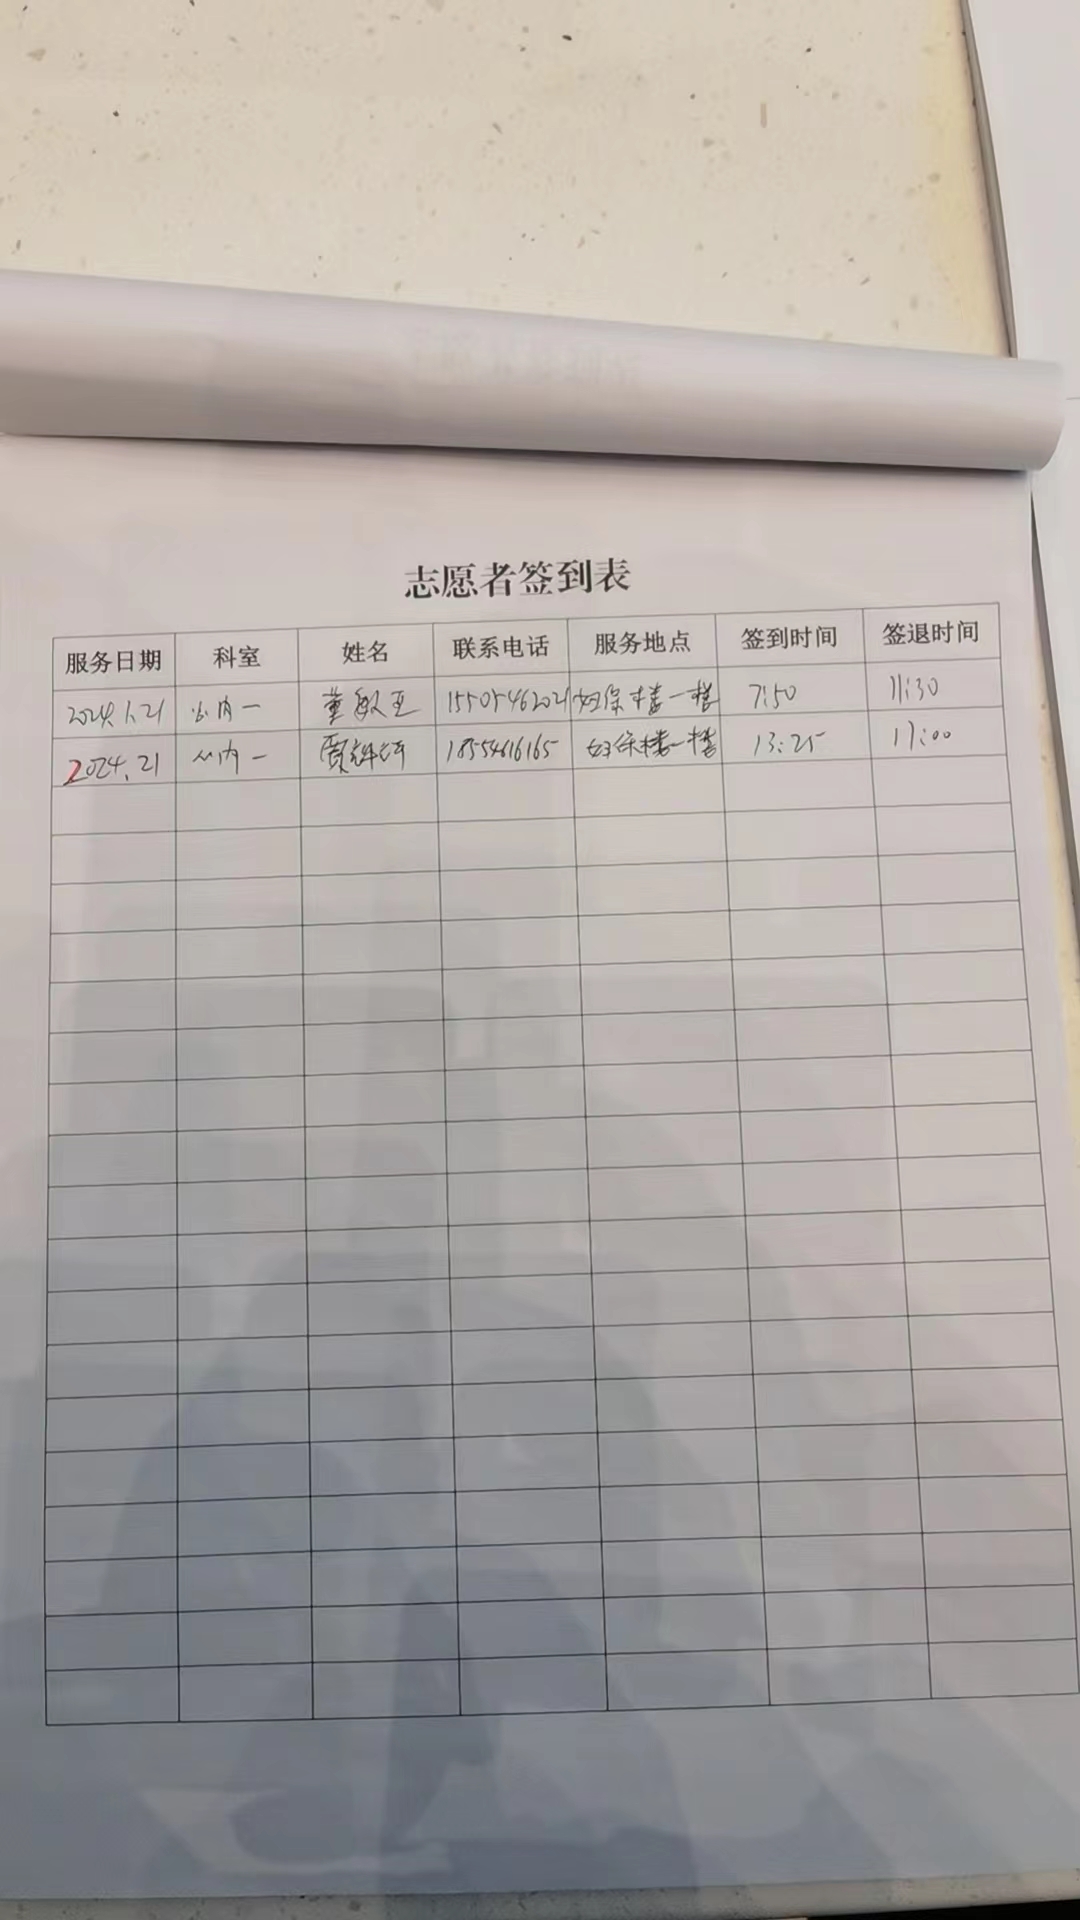 志愿者签到表
服务日期 科室 姓名 联系电话 服务地点 签到时间 签退时间
2024.1.21 内一 董 15505462021 妇保楼一楼 7:50 11:30
2024.21 内一 贾 18554616165 妇保楼一楼 13:25 17:00